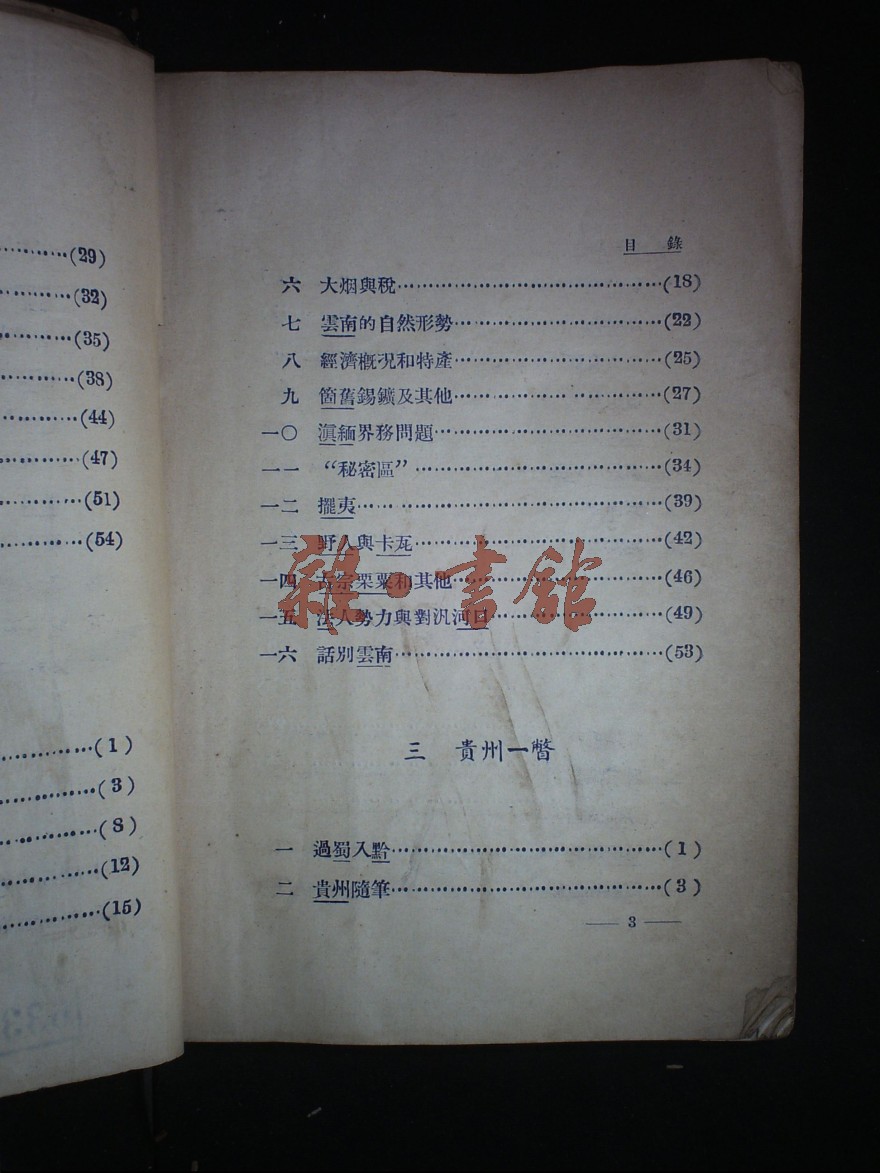 (29)
(32)
(35)
(38)
(44)
(47)
(51)
(54)
(1)
(3)
(8)
(12)
(15)
目錄
六 大烟與稅(18)
七 雲南的自然形勢(22)
八 經濟槪況和特產(25)
九 箇舊錫鑛及其他(27)
一〇 滇緬界務問題(31)
一一 “秘密區”(34)
一二 擺夷(39)
一三 野人與卡瓦(42)
一四 古宗栗粟和其他(46)
一五 法人勢力與對汎河口(49)
一六 話別雲南(53)
三 貴州一瞥
一 過蜀入黔(1)
二 貴州隨筆(3)
— 3 —
雜·書館